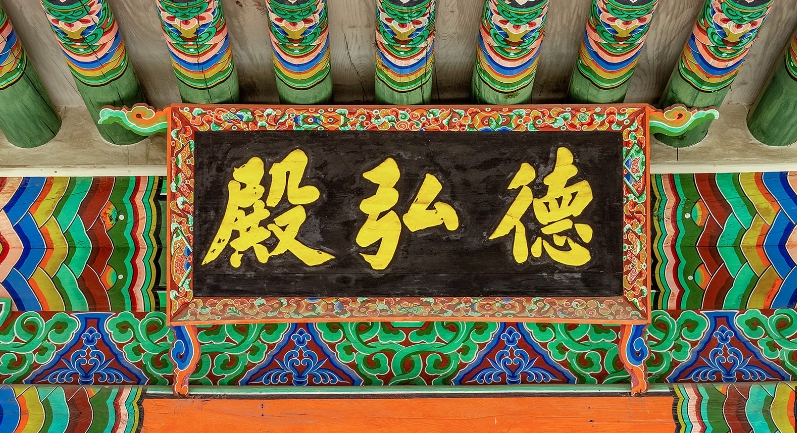 德弘殿